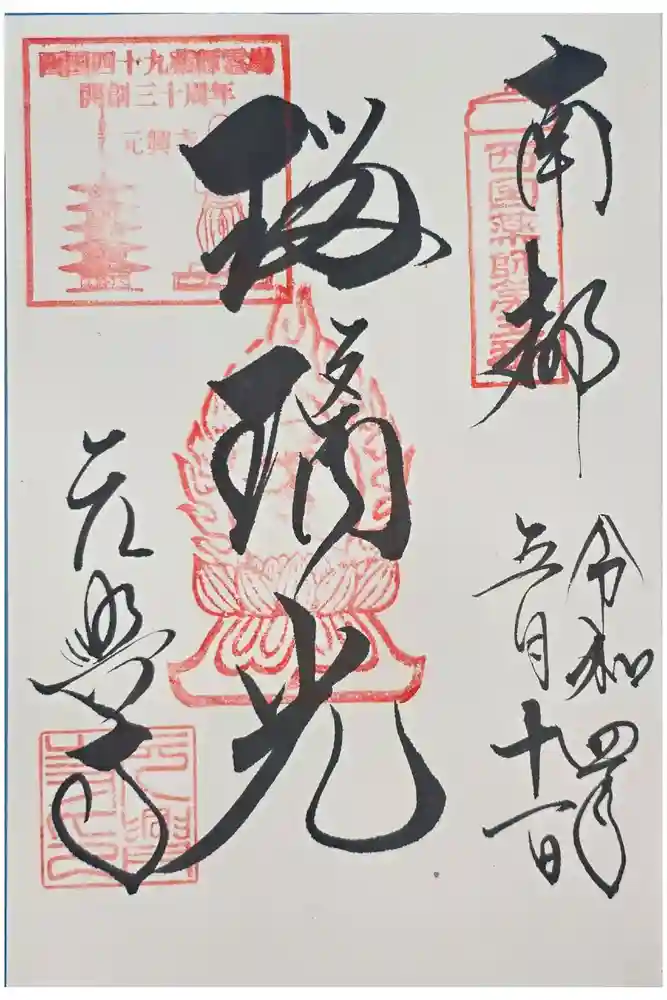 南都
令和四年
五月十一日
西国薬師第五番
瑠璃光
西国四十九薬師霊場
開創三十周年
元興寺
元興寺